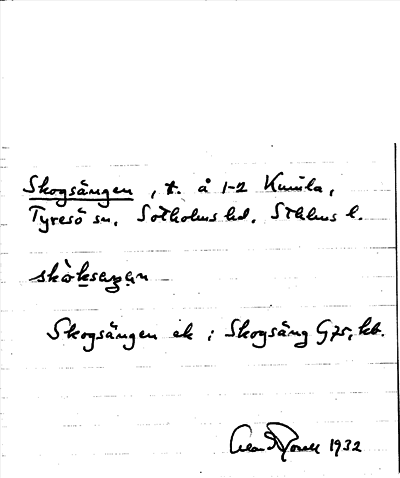 Skogsängen, t. å 1-2 Kumla,
Tyresö sn. Sotholms hd. Sthlms l.
skòksæŋən
Skogsängen ek ; Skogsäng G75, kb.
1932